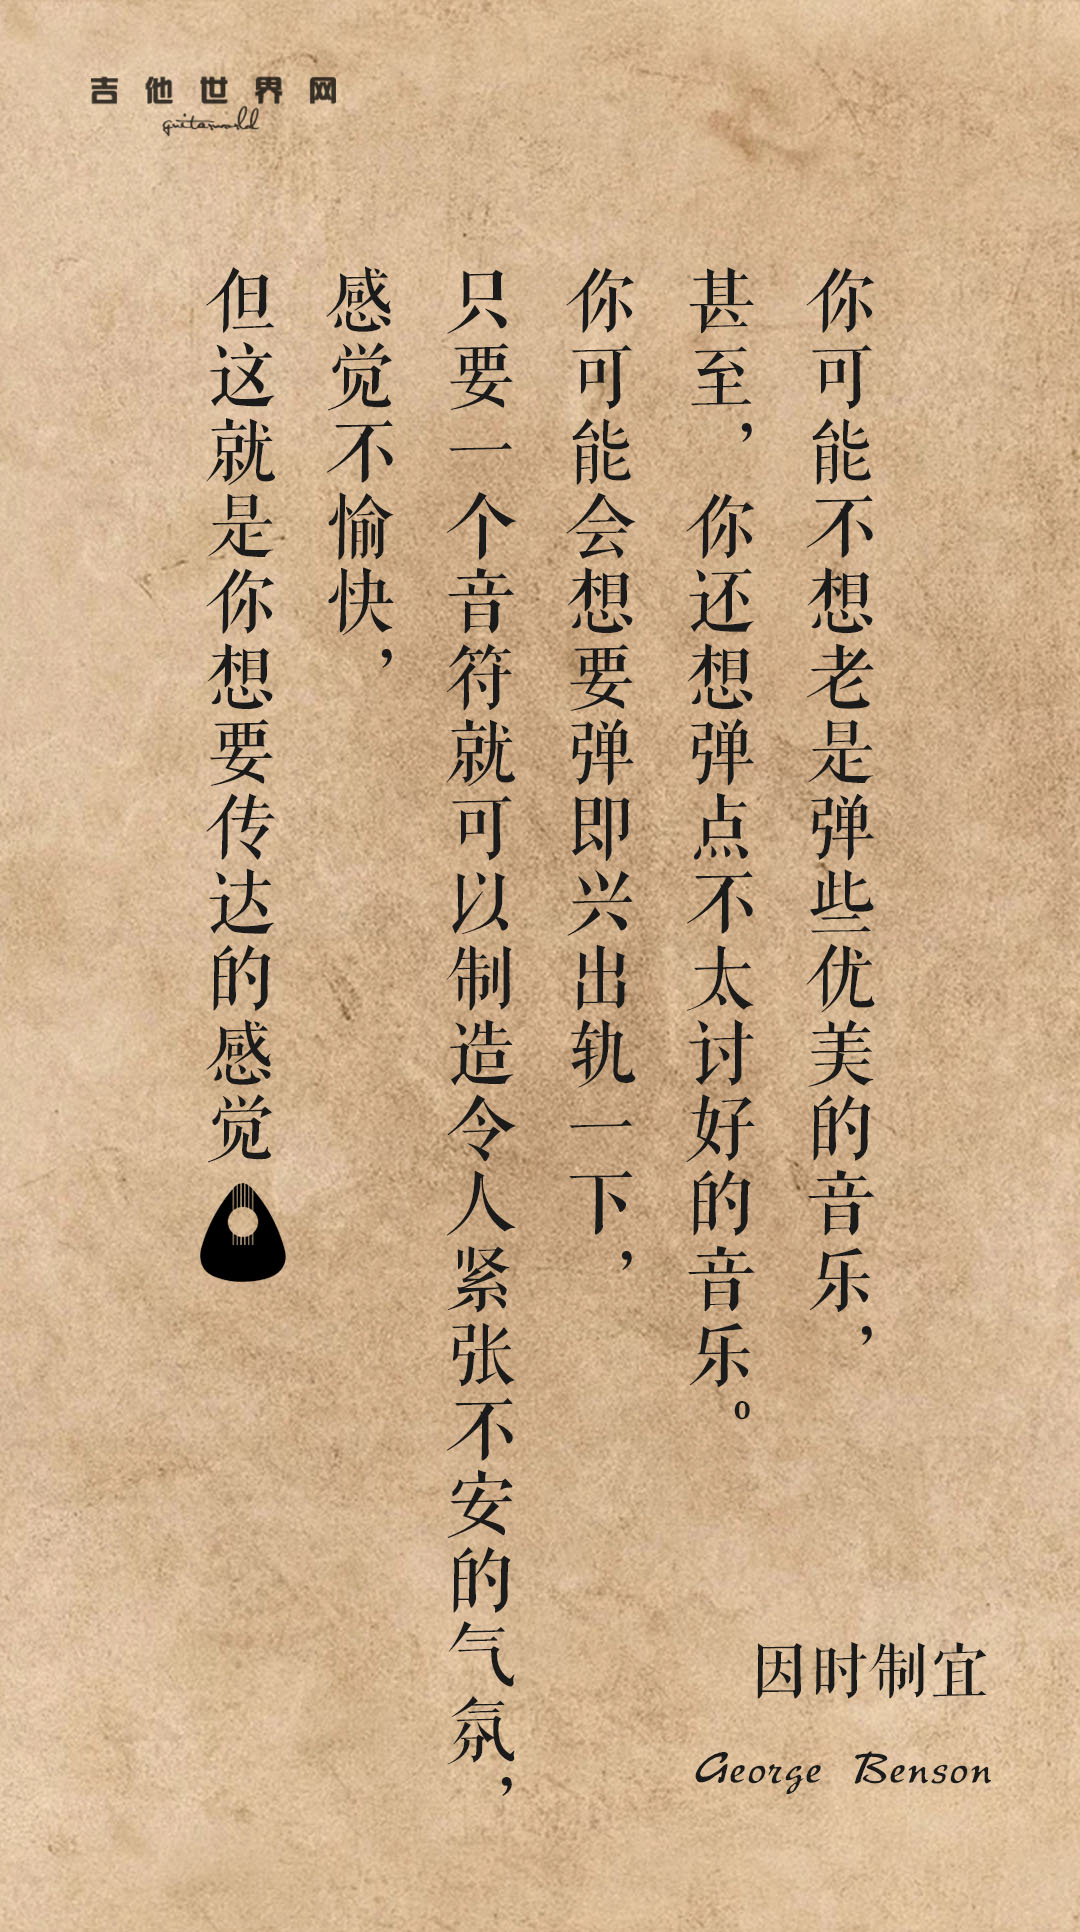 吉他世界网
guitarworld
你可能不想老是弹些优美的音乐，
甚至，你还想弹点不太讨好的音乐。
你可能会想要弹即兴出轨一下，
只要一个音符就可以制造令人紧张不安的气氛，
感觉不愉快，
但这就是你想要传达的感觉
因时制宜
George Benson